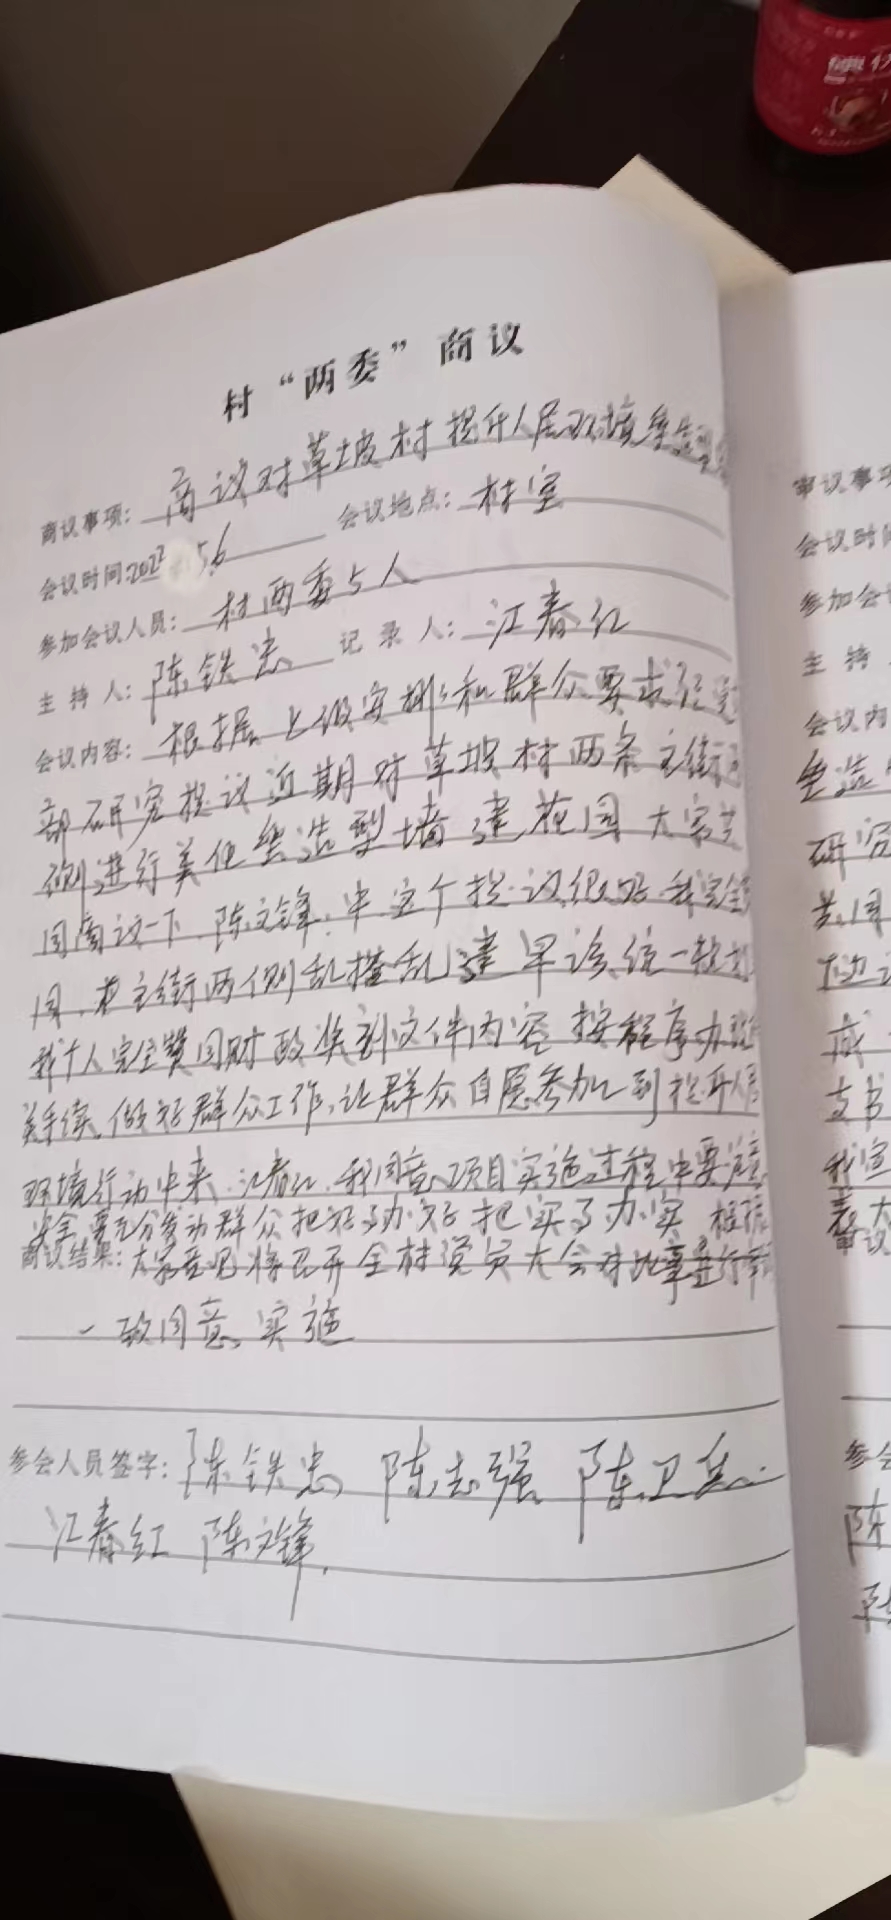 村“两委”商议
商议事项：商议对草坡村提升人居环境垒造
会议时间：2022 5.6 会议地点：村室
参加会议人员：村两委5人
主持人：陈铁忠 记录人：江春红
会议内容：根据上级安排和群众要求经
部研究提议近期对草坡村两条主街
侧进行美化垒造型墙建花园大家
同商议一下。陈文锋：中这个提议很好我完全
同，在主街两侧乱搭乱建早该统一规划
我个人完全赞同财政奖到文件内容按程序办
关手续，做好群众工作，让群众自愿参加到提升人居
环境行动中来。江春红：我同意，项目实施过程中要注意
安全要充分发动群众把好事办好把实事办实 根据
商议结果：大家意见将召开全村党员大会对此事进行
一致同意实施
参会人员签字：陈铁忠 陈志强 陈卫兵
江春红 陈文锋
审议事项
会议时间
参加会
主持
会议内
垒造
研究
共同
成
支书
我
审议
参会
陈